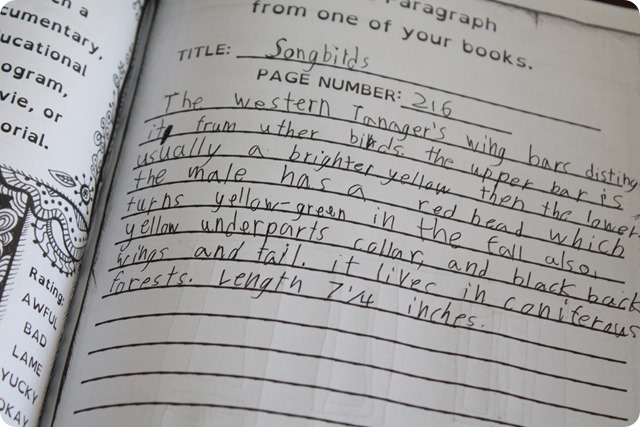 h a
cumentary,
ucational
ogram,
vie, or
orial.
Rating:
AWFUL
BAD
LAME
YUCKY
OKAY
Paragraph
from one of your books.
TITLE: Songbirds
PAGE NUMBER: 216
The western Tanager's wing bars disting
it frum uther birds. the upper bar is
usually a brighter yellow then the lower.
the male has a red head which
turns yellow-green in the fall also,
yellow underparts collar, and black back
wings and tail. it lives in coniferous
forests. Length 7 1/4 inches.